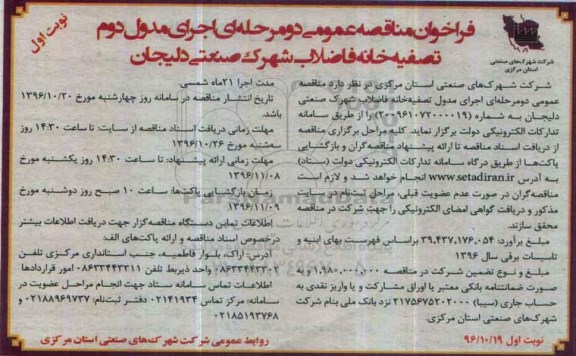 نوبت اول
فراخوان مناقصه عمومی دو مرحله‌ای اجرای مدول دوم
تصفیه خانه فاضلاب شهرک صنعتی دلیجان
شرکت شهرک‌های صنعتی
استان مرکزی
شرکت شهرک‌های صنعتی استان مرکزی در نظر دارد مناقصه
عمومی دومرحله‌ای اجرای مدول تصفیه‌خانه فاضلاب شهرک صنعتی
دلیجان به شماره (۲۰۰۹۶۱۰۷۲۰۰۰۰۱۹) را از طریق سامانه
تدارکات الکترونیکی دولت برگزار نماید. کلیه مراحل برگزاری مناقصه
از دریافت اسناد مناقصه تا ارائه پیشنهاد مناقصه‌گران و بازگشایی
پاکت‌ها از طریق درگاه سامانه تدارکات الکترونیکی دولت (ستاد)
به آدرس www.setadiran.ir انجام خواهد شد و لازم است
مناقصه‌گران در صورت عدم عضویت قبلی، مراحل ثبت‌نام در سایت
مذکور و دریافت گواهی امضای الکترونیکی را جهت شرکت در مناقصه
محقق سازند.
مبلغ برآورد: ۳۹,۴۳۷,۱۷۶,۰۵۴ براساس فهرست بهای ابنیه و
تاسیسات برقی سال ۱۳۹۶
مبلغ و نوع تضمین شرکت در مناقصه ۱,۹۸۰,۰۰۰,۰۰۰ و به
صورت ضمانتنامه بانکی معتبر یا اوراق مشارکت و یا واریز نقدی به
حساب جاری (سیبا) ۲۱۷۵۶۷۵۲۰۲۰۰۰ نزد بانک ملی بنام شرکت
شهرک‌های صنعتی استان مرکزی.
مدت اجرا ۲۱ماه شمسی.
تاریخ انتشار مناقصه در سامانه روز چهارشنبه مورخ ۱۳۹۶/۱۰/۲۰
باشد.
مهلت زمانی دریافت اسناد مناقصه از سایت: تا ساعت ۱۴:۳۰ روز
سه‌شنبه مورخ ۱۳۹۶/۱۰/۲۶
مهلت زمانی ارائه پیشنهاد: تا ساعت ۱۴:۳۰ روز یکشنبه مورخ
۱۳۹۶/۱۱/۰۸
زمان بازگشایی پاکت‌ها: ساعت ۱۰ صبح روز دوشنبه مورخ
۱۳۹۶/۱۱/۰۹
اطلاعات تماس دستگاه مناقصه‌گزار جهت دریافت اطلاعات بیشتر
درخصوص اسناد مناقصه و ارائه پاکت‌های الف:
آدرس: اراک، بلوار فاطمیه، جنب استانداری مرکزی تلفن
۰۸۶۳۳۴۴۳۳۰۲ واحد ذیربط تلفن ۰۸۶۳۳۴۴۳۳۱۱ امور قراردادها
اطلاعات تماس سامانه ستاد جهت انجام مراحل عضویت در
سامانه: مرکز تماس ۰۲۱۴۱۹۳۴ دفتر ثبت‌نام: ۰۲۱۸۸۹۶۹۷۳۷ و
۰۲۱۸۵۱۹۳۷۶۸
نوبت اول ۹۶/۱۰/۱۹
روابط عمومی شرکت شهرک‌های صنعتی استان مرکزی